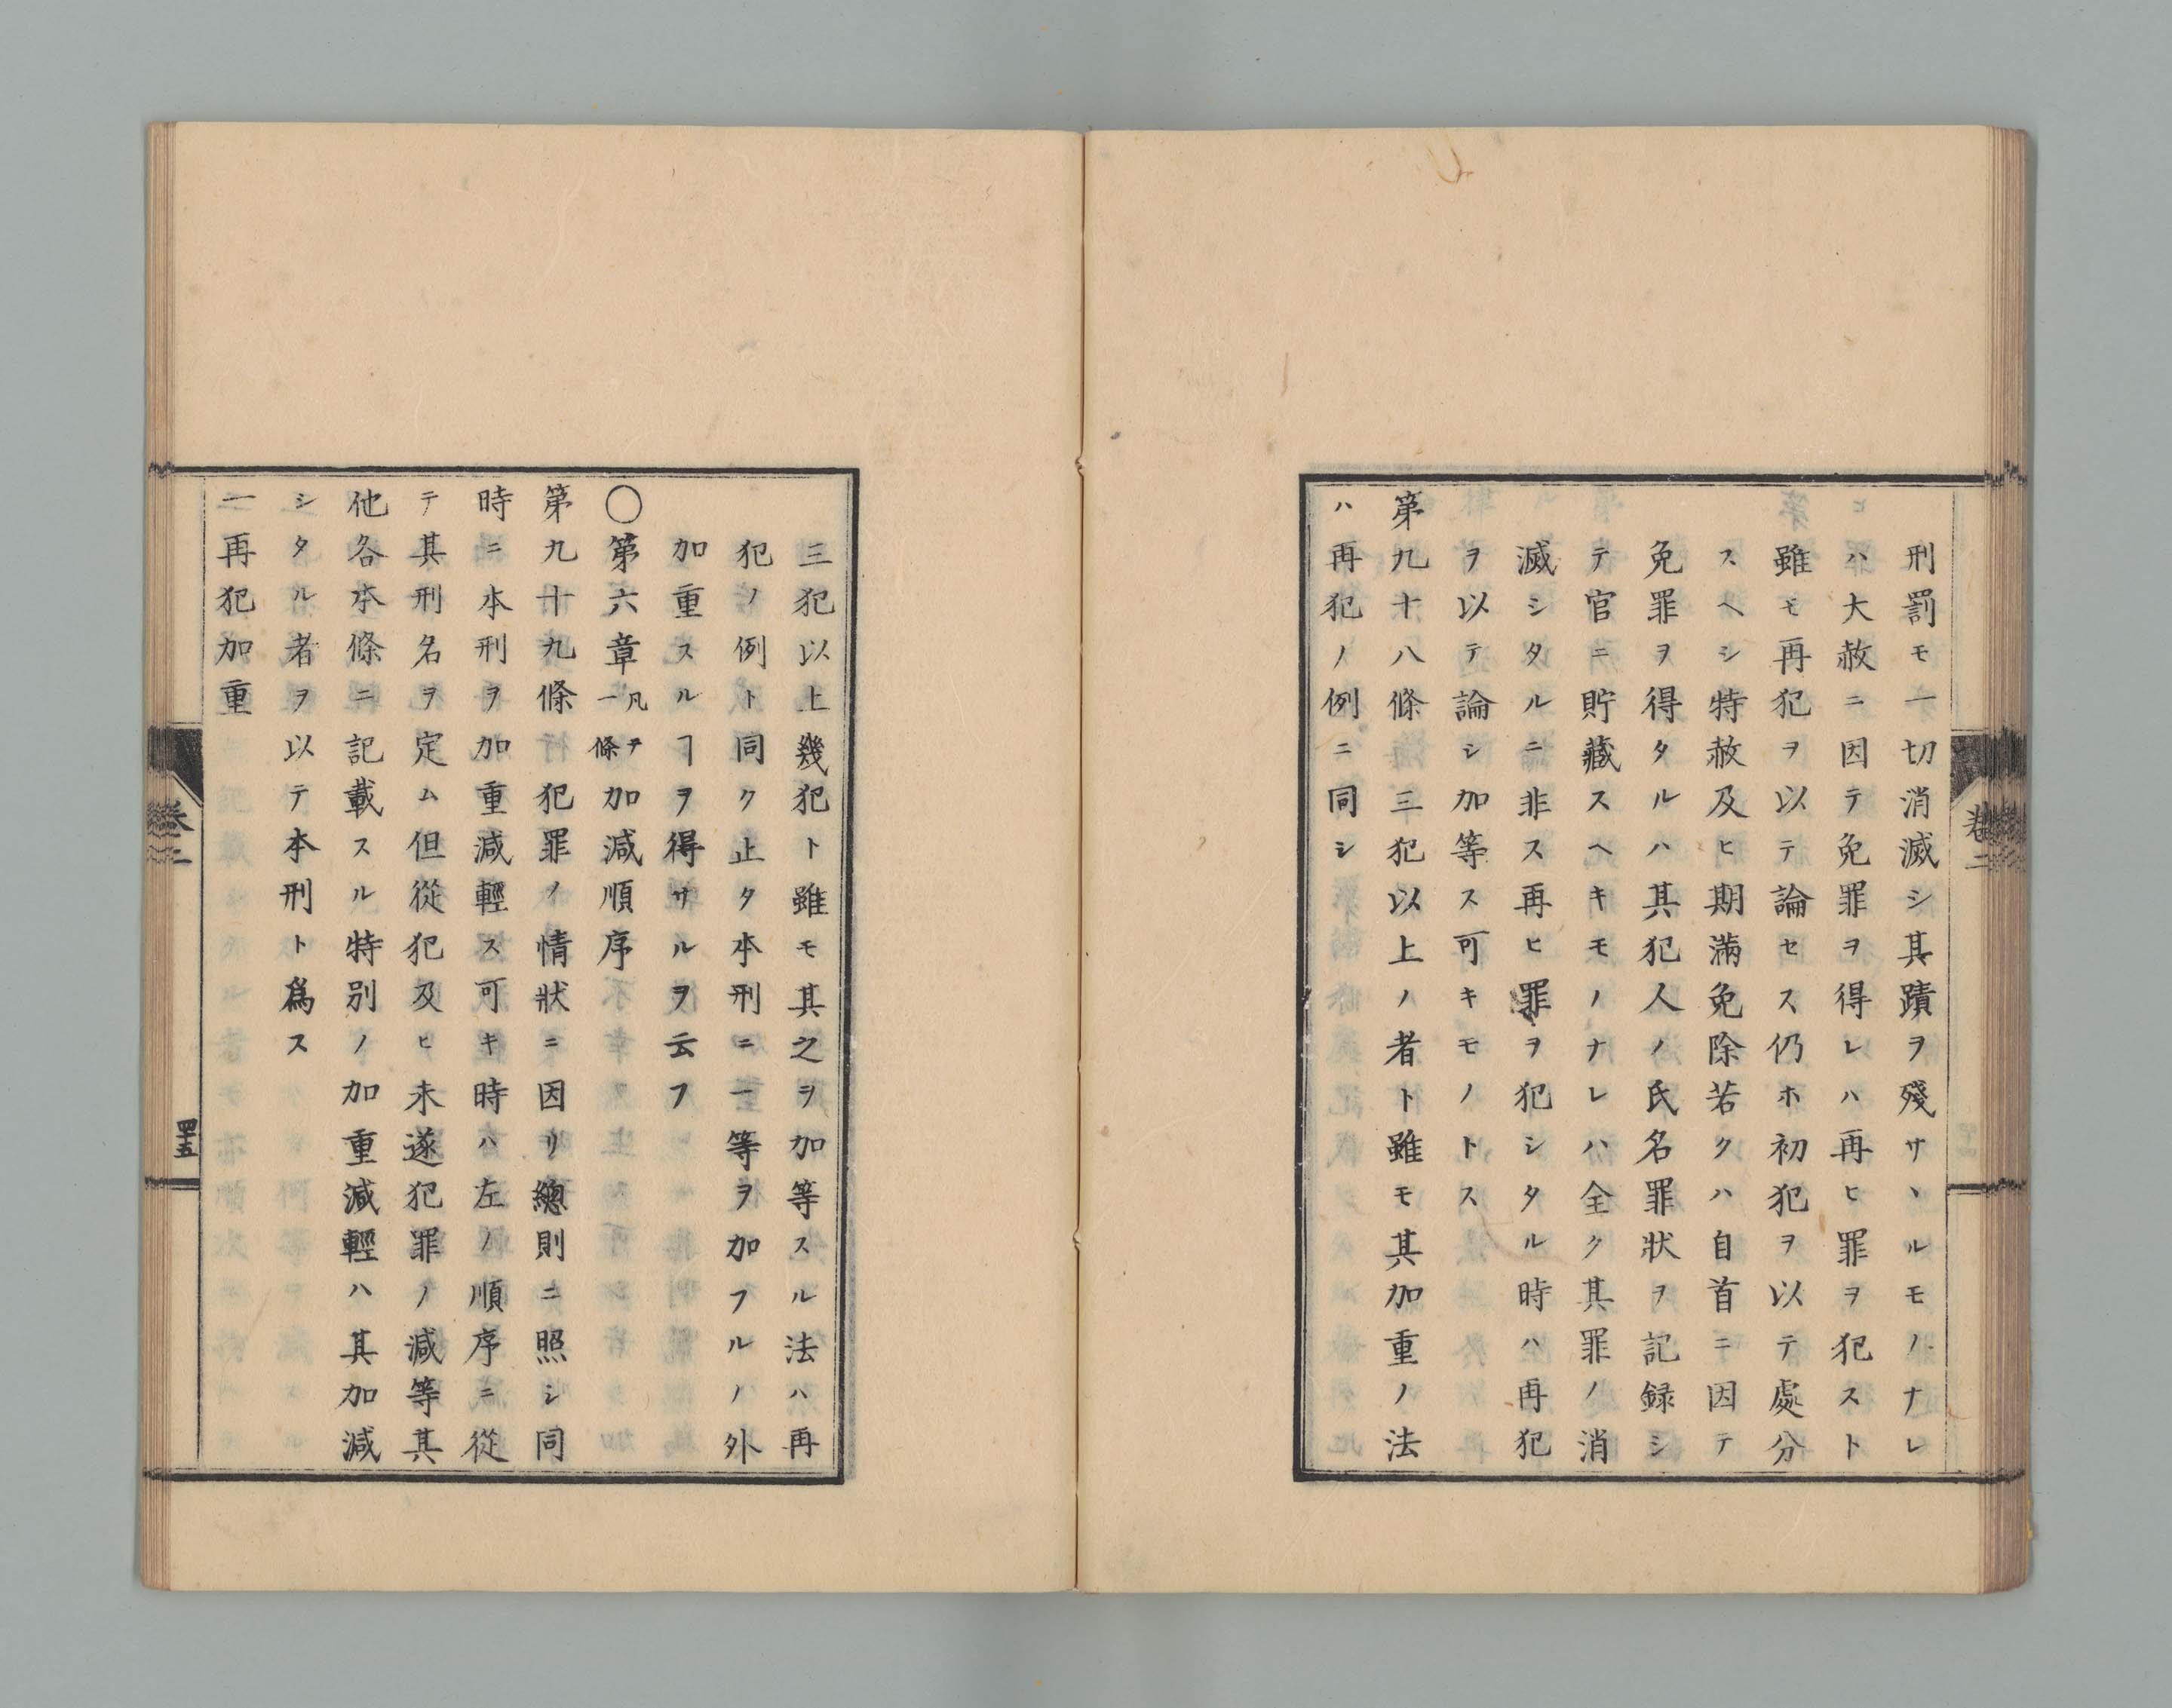 刑罰モ一切消滅シ其蹟ヲ殘サヽルモノナレ
ハ大赦ニ因テ免罪ヲ得レハ再ヒ罪ヲ犯スト
雖モ再犯ヲ以テ論セス仍ホ初犯ヲ以テ處分
スヘシ特赦及ヒ期滿免除若クハ自首ニ因テ
免罪ヲ得タルハ其犯人ノ氏名罪狀ヲ記録シ
テ官ニ貯藏スヘキモノナレハ全ク其罪ノ消
滅シタルニ非ス再ヒ罪ヲ犯シタル時ハ再犯
ヲ以テ論シ加等ス可キモノトス
第九十八條 三犯以上ノ者ト雖モ其加重ノ法
ハ再犯ノ例ニ同シ
卷二
三犯以上幾犯ト雖モ其之ヲ加等スル法ハ再
犯ノ例ト同ク止タ本刑ニ一等ヲ加フルノ外
加重スルヿヲ得サルヲ云フ
〇第六章 凡テ一條 加減順序
第九十九條 犯罪ノ情狀ニ因リ總則ニ照シ同
時ニ本刑ヲ加重減輕ス可キ時ハ左ノ順序ニ從
テ其刑名ヲ定ム但從犯及ヒ未遂犯罪ノ減等其
他各本條ニ記載スル特別ノ加重減輕ハ其加減
シタル者ヲ以テ本刑ト爲ス
一 再犯加重
卷二
四十五